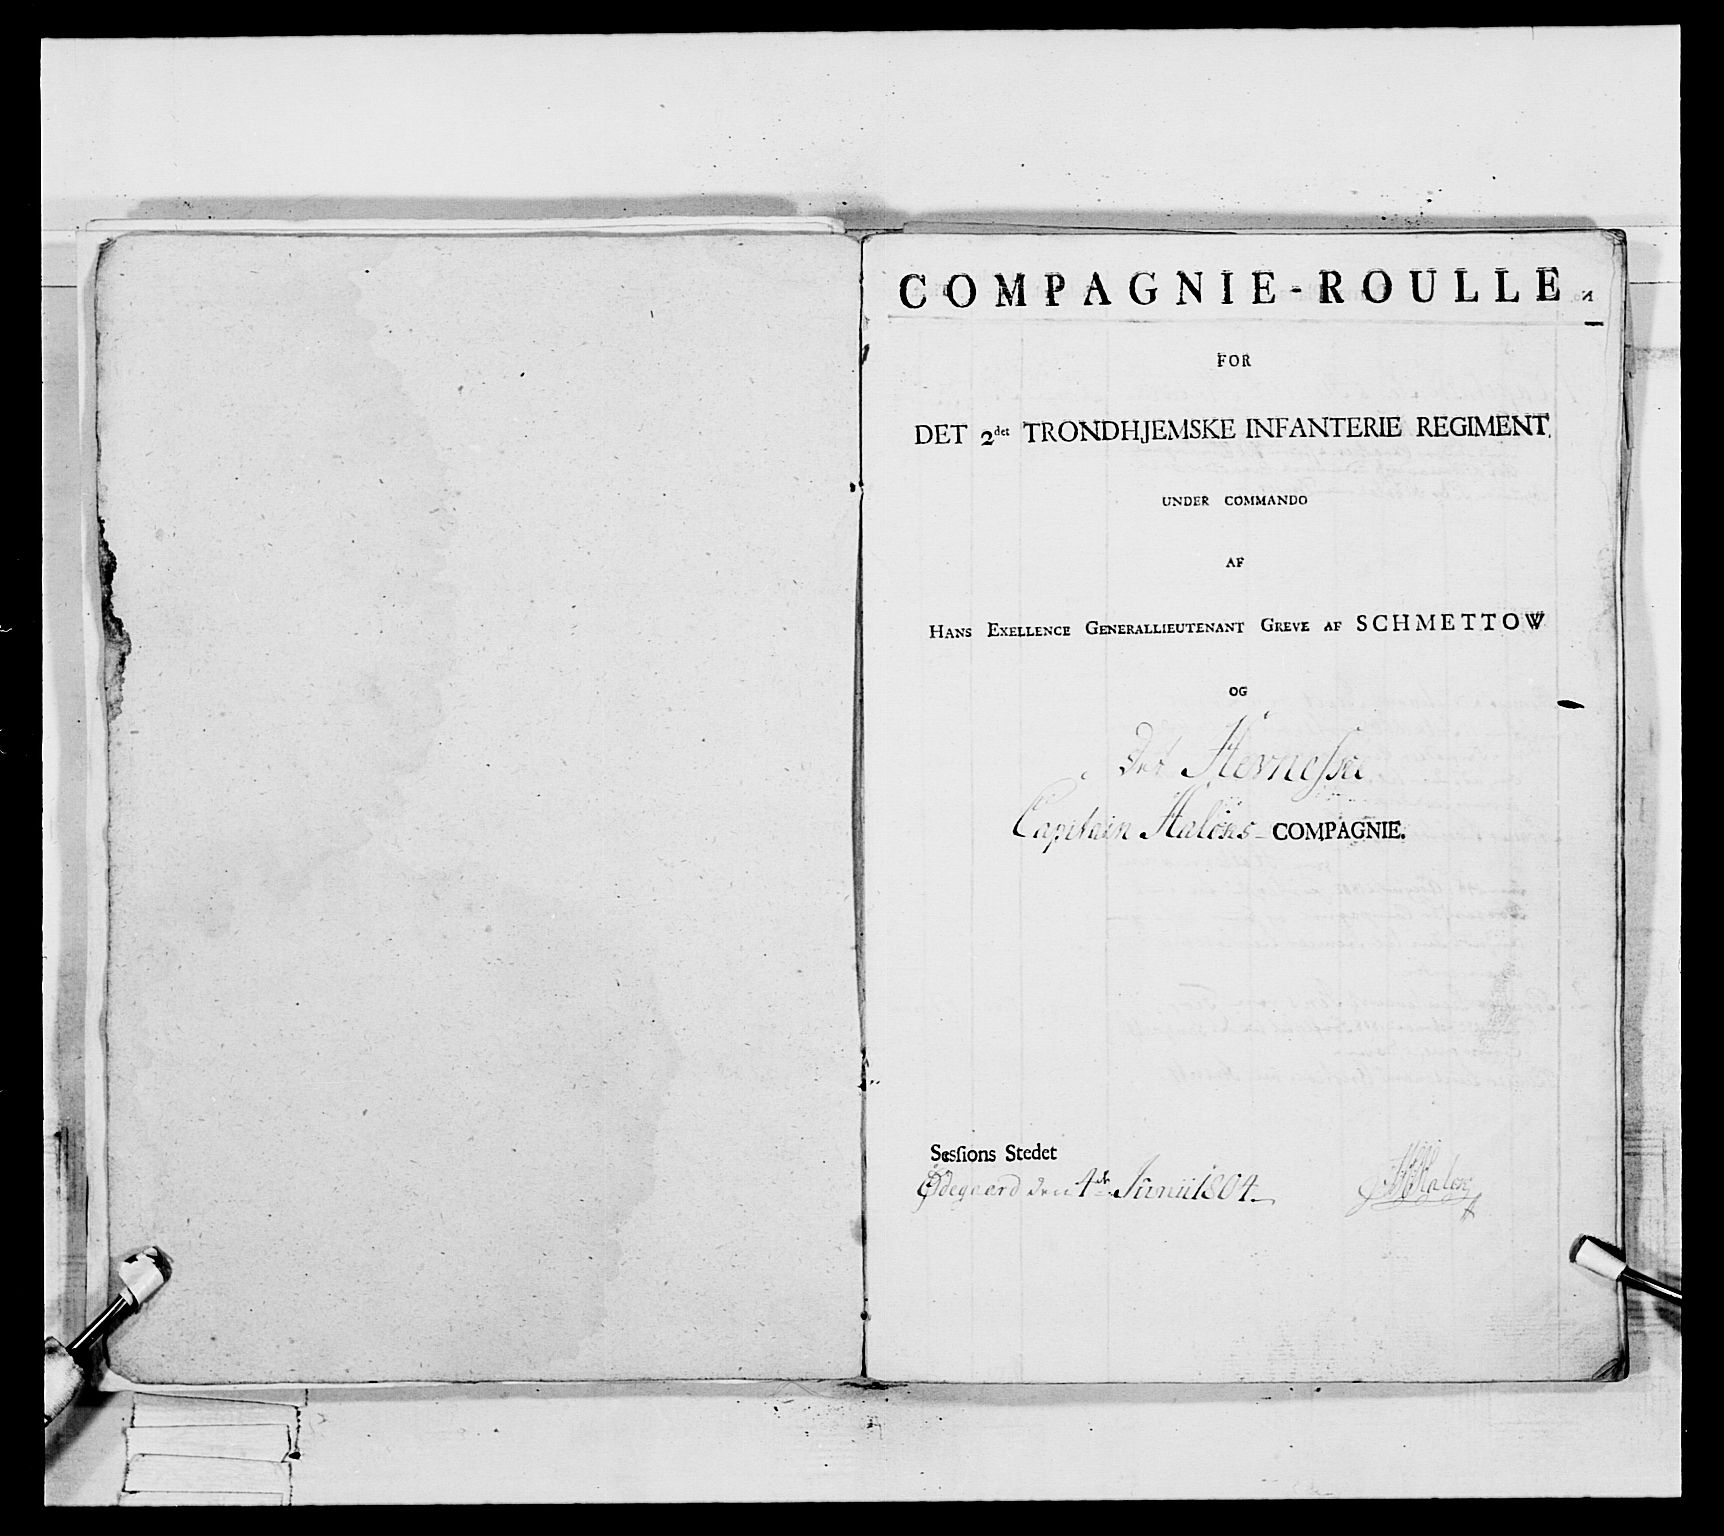 COMPAGNIE-ROULLE
FOR
DET 2det TRONDHJEMSKE INFANTERIE REGIMENT,
UNDER COMMANDO
AF
HANS EXELLENCE GENERALLIEUTENANT GREVE AF SCHMETTOW
OG
Det Hevneſke
Capitain Halens COMPAGNIE.
Sesſions Stedet
Ødegaard den 4de Junii 1804